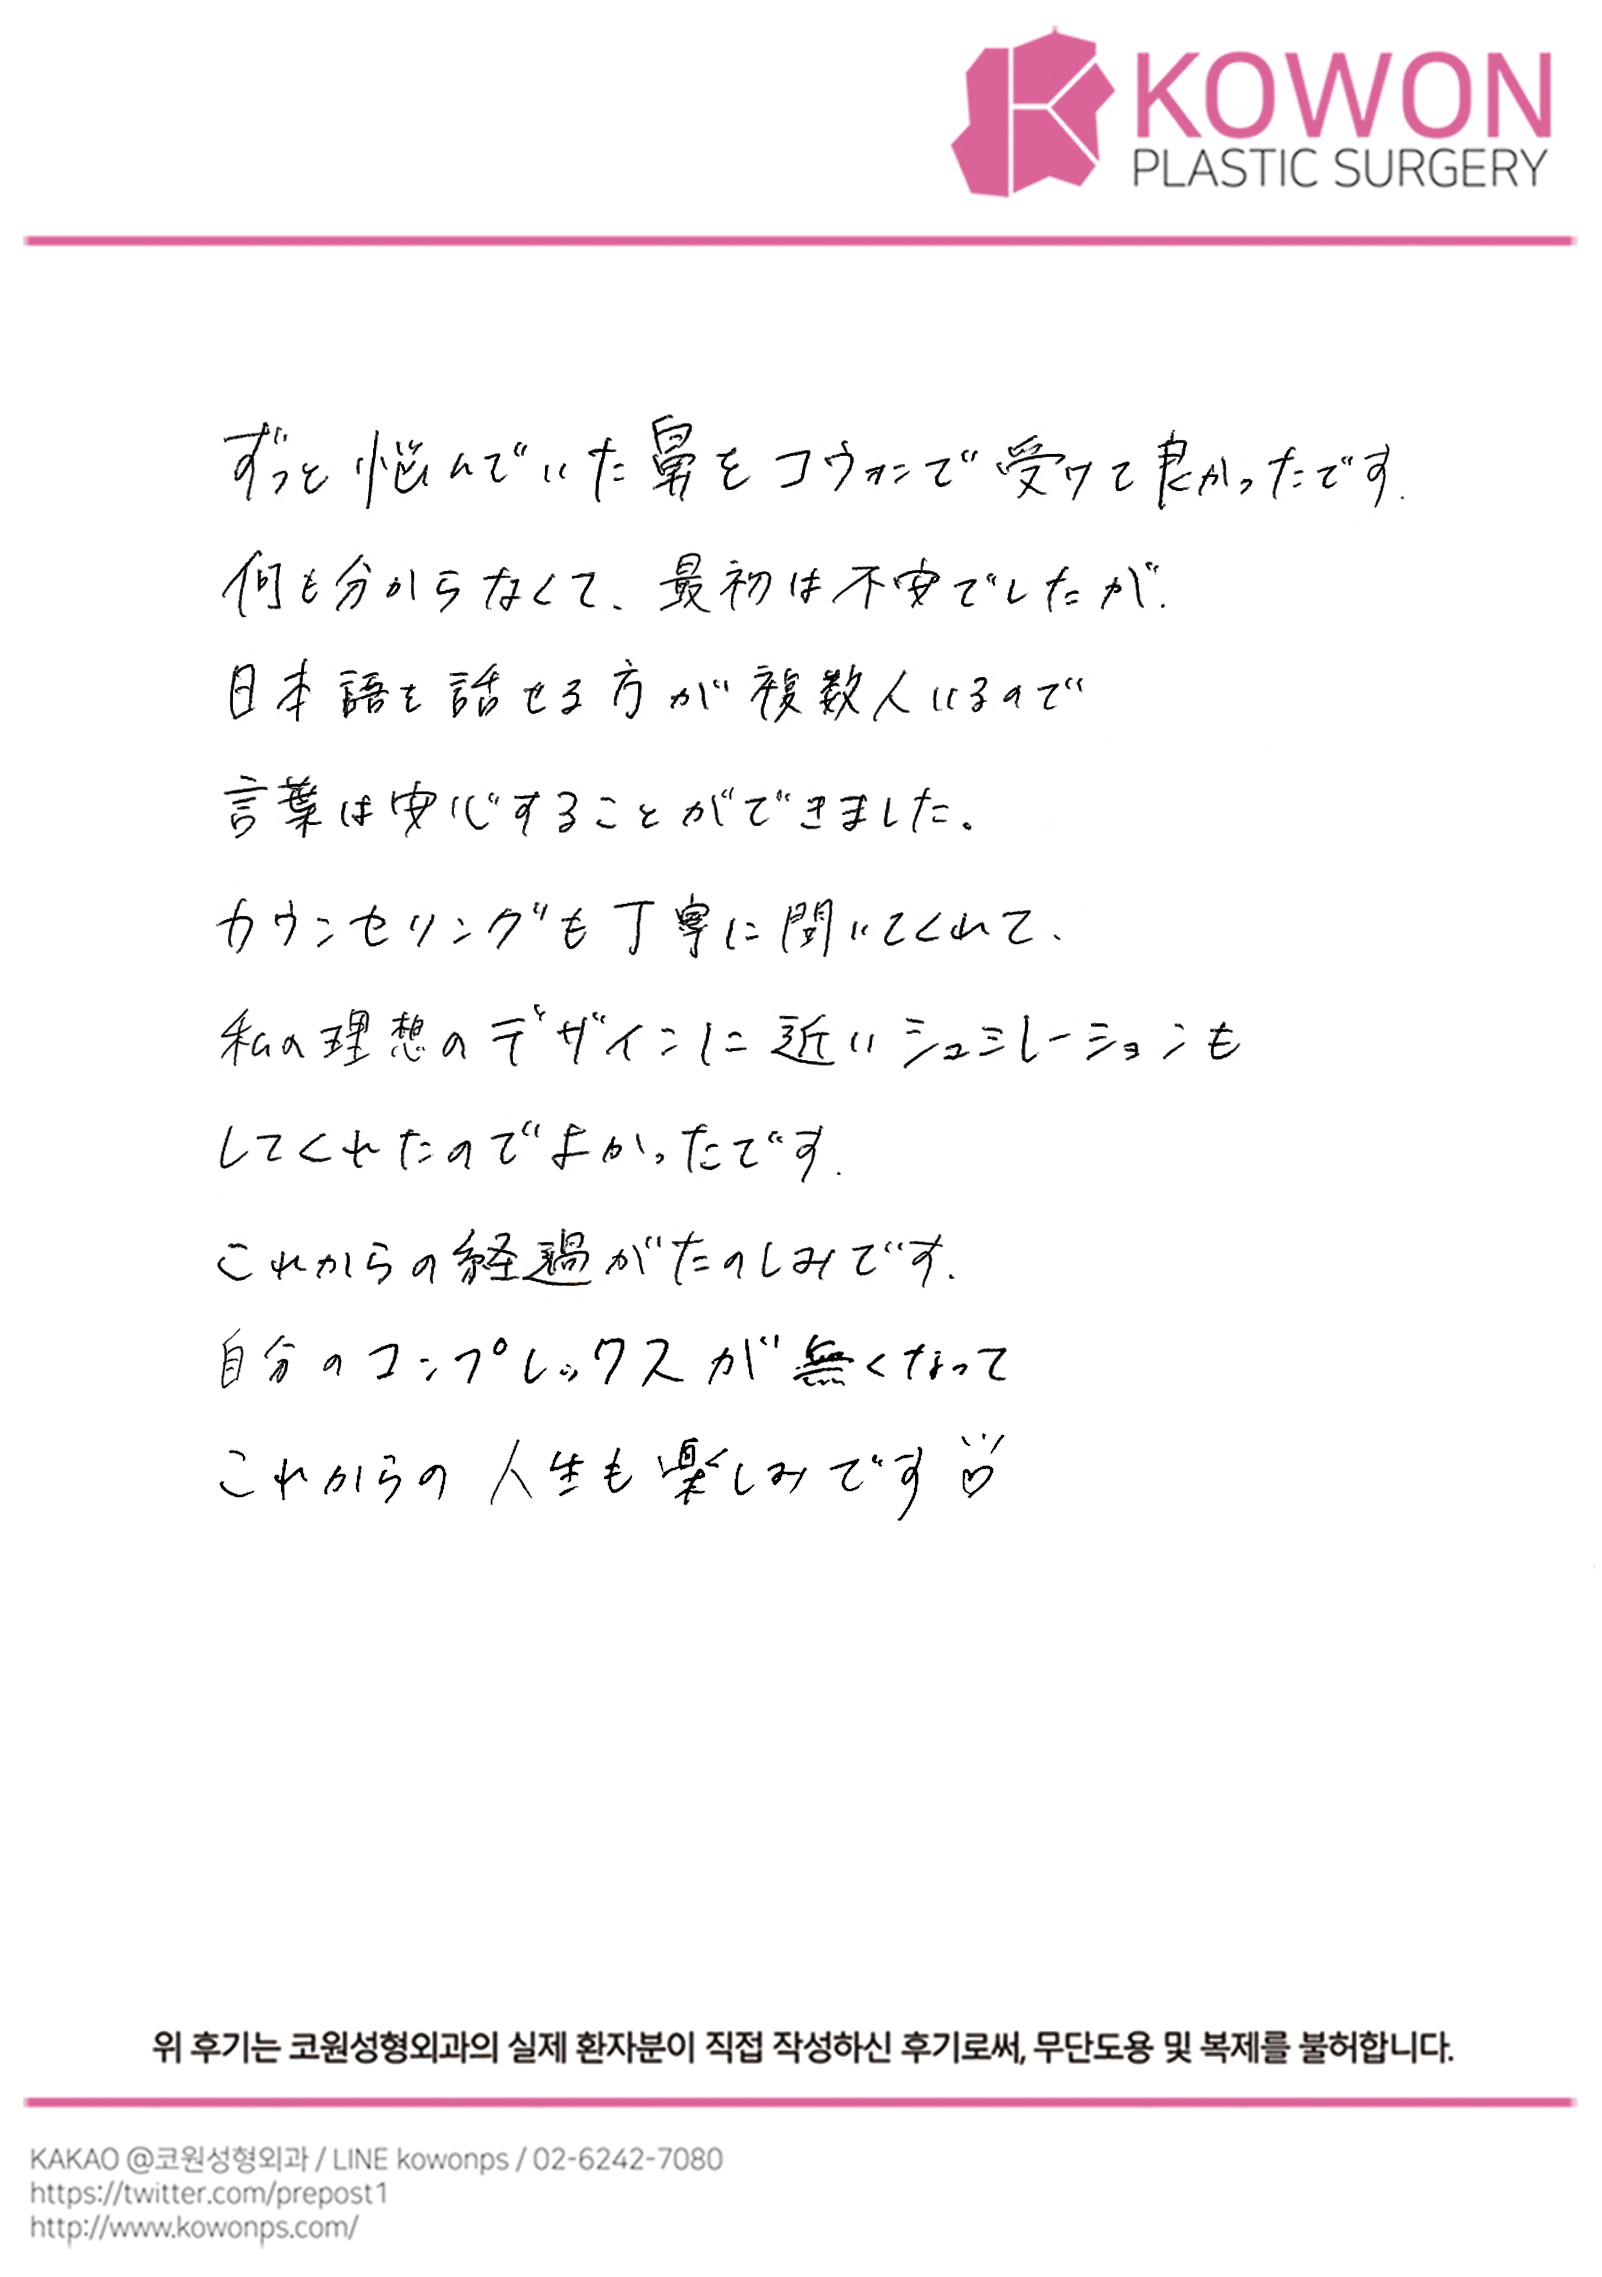 KOWON
PLASTIC SURGERY
ずっと悩んでいた鼻をコウォンで受けて良かったです.
何も分からなくて、最初は不安でしたが、
日本語を話せる方が複数人いるので
言葉は安心することができました。
カウンセリングも丁寧に聞いてくれて、
私の理想のデザインに近いシュミレーションも
してくれたのでよかったです.
これからの経過がたのしみです.
自分のコンプレックスが無くなって
これからの人生も楽しみです
위 후기는 코원성형외과의 실제 환자분이 직접 작성하신 후기로써, 무단도용 및 복제를 불허합니다.
KAKAO @코원성형외과 / LINE kowonps / 02-6242-7080
https://twitter.com/prepost1
http://www.kowonps.com/